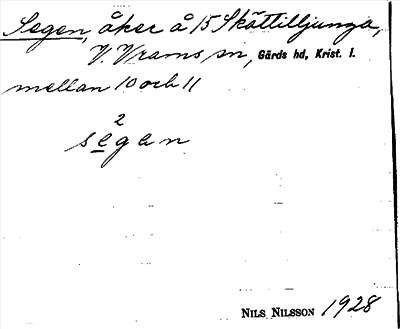 Segen, åker å 15 Skättilljunga,
V. Vrams sn, Gärds hd, Krist. l.
mellan 10 och 11
2
segen
NILS NILSSON 1928